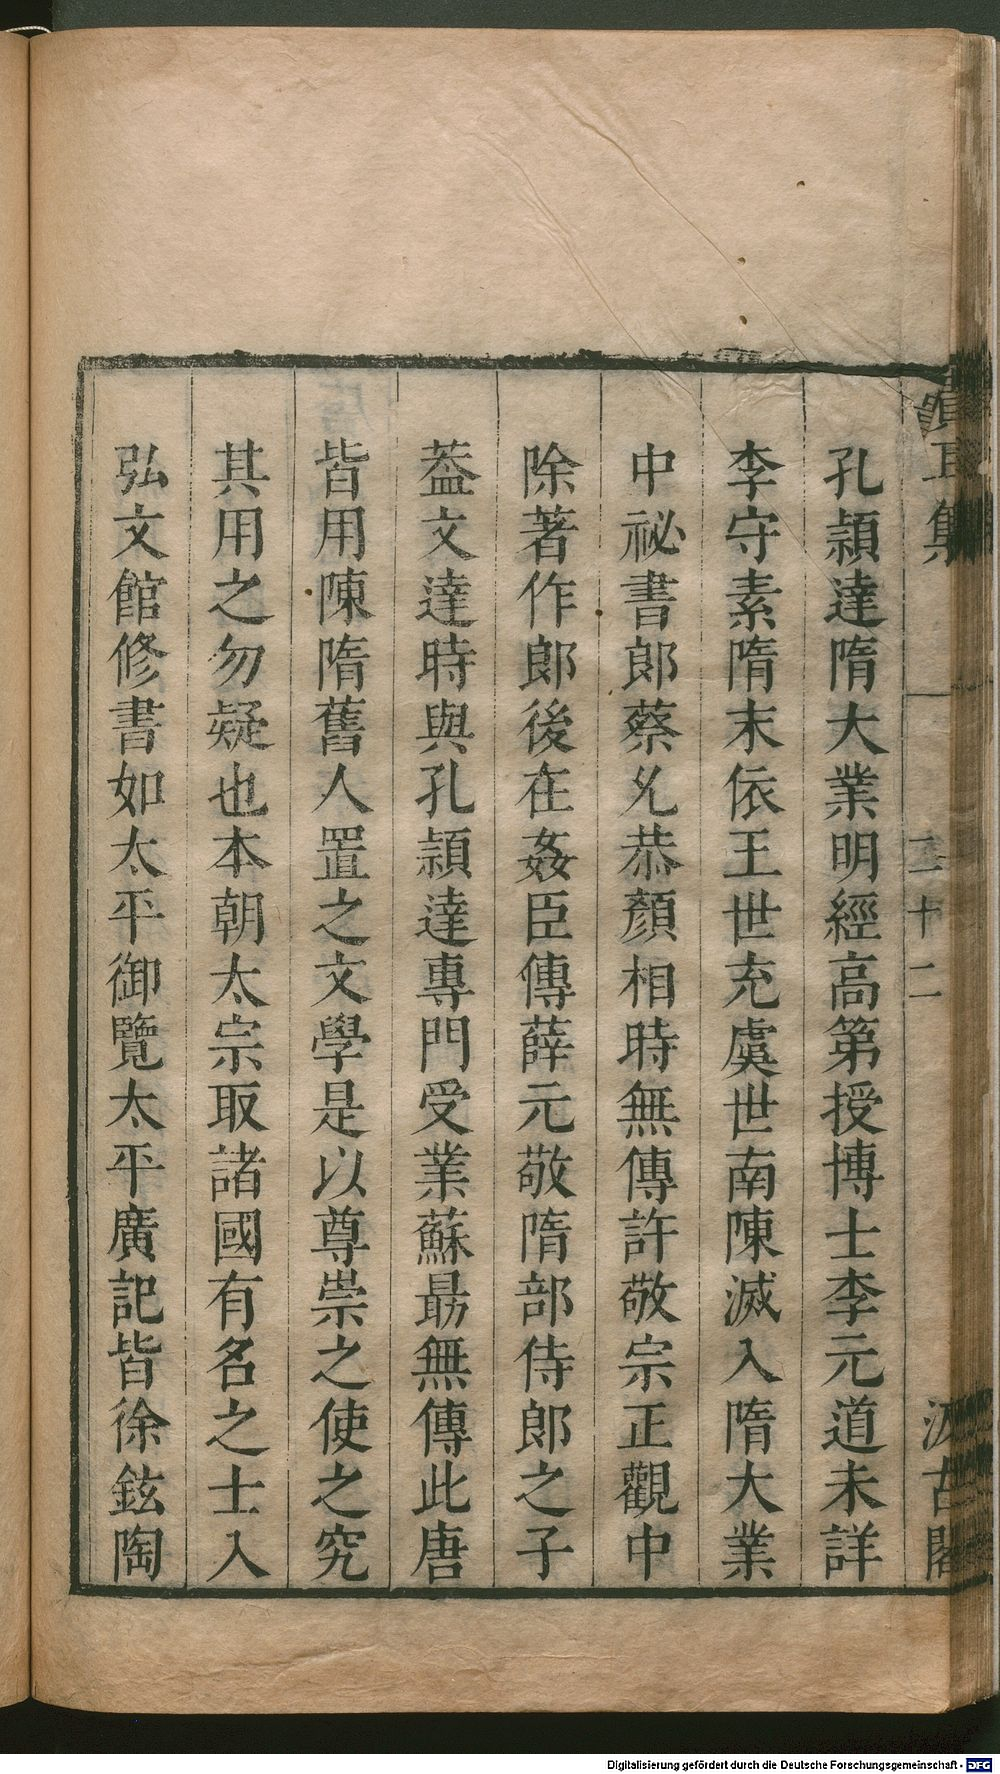 貴耳集
二十二
汲古閣
孔頴達隋大業明經高第授博士李元道未詳
李守素隋末依王世充虞世南陳滅入隋大業
中祕書郎蔡允恭顏相時無傳許敬宗正觀中
除著作郎後在姦臣傳薛元敬隋部侍郎之子
葢文達時與孔頴達專門受業蘇勗無傳此唐
皆用陳隋舊人置之文學是以尊崇之使之究
其用之勿疑也本朝太宗取諸國有名之士入
弘文館修書如太平御覽太平廣記皆徐鉉陶
Digitalisierung gefördert durch die Deutsche Forschungsgemeinschaft - DFG